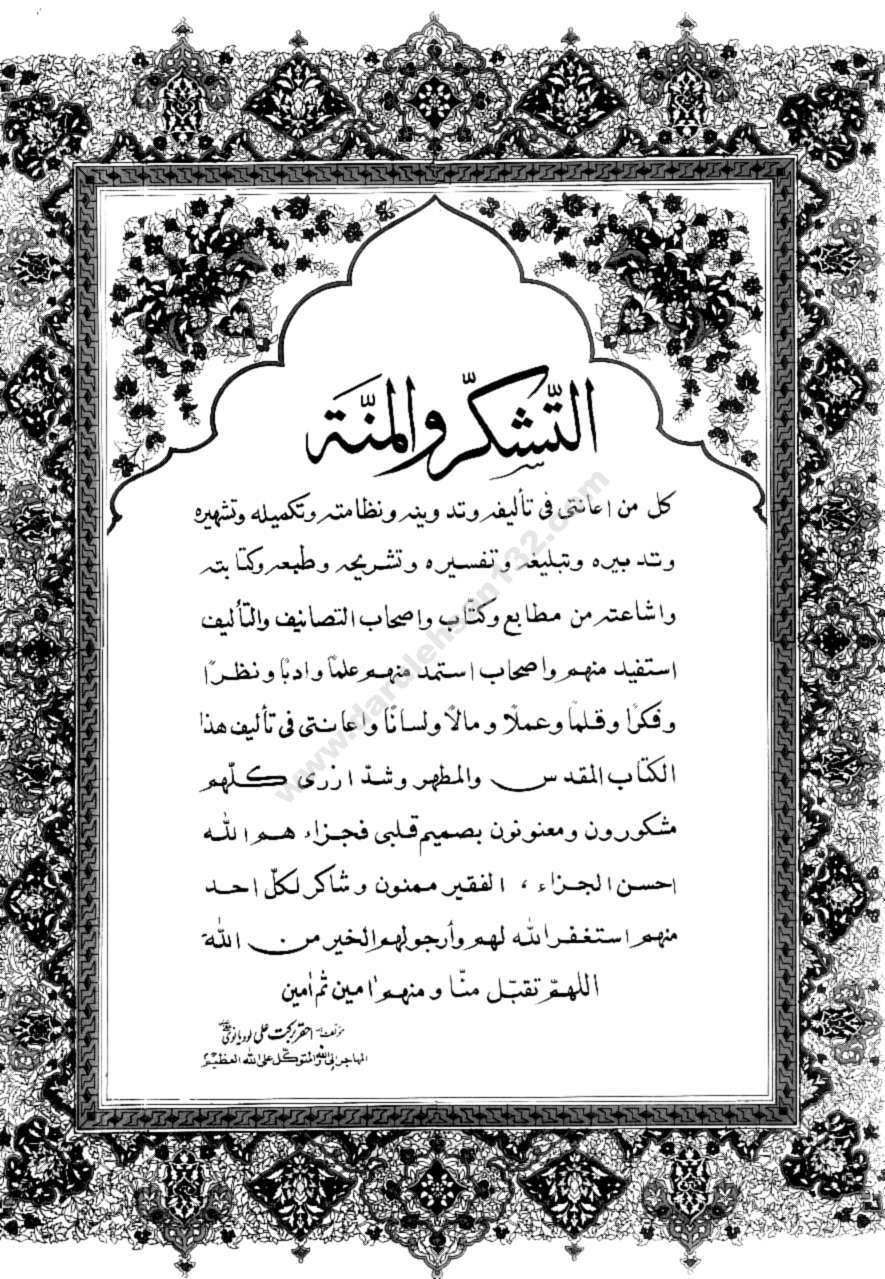 التّشكّر والمنّة
كل من اعانتى فى تأليفه وتدوينه ونظامته وتكميله وتشهيره
وتدبيره وتبليغه وتفسيره وتشريحه وطبعه وكتابته
واشاعته من مطابع وكتاب واصحاب التصانيف والتأليف
استفيد منهم واصحاب استمد منهم علمًا وادبًا ونظرًا
وفكرًا وقلمًا وعملًا ومالًا ولسانًا واعانتى فى تأليف هذا
الكتاب المقدس والمطهر وشدّ ازرى كلّهم
مشكورون ومعنونون بصميم قلبى فجزاء هم الله
احسن الجزاء ، الفقير ممنون وشاكر لكلّ احد
منهم استغفر الله لهم وأرجو لهم الخير من الله
اللهمّ تقبّل منّا ومنهم اٰمين ثم اٰمين
مؤلف احقر برکت علی لودہانوی
المهاجر الى الله والمتوكّل على الله العظيم
www.darulehsan132.com